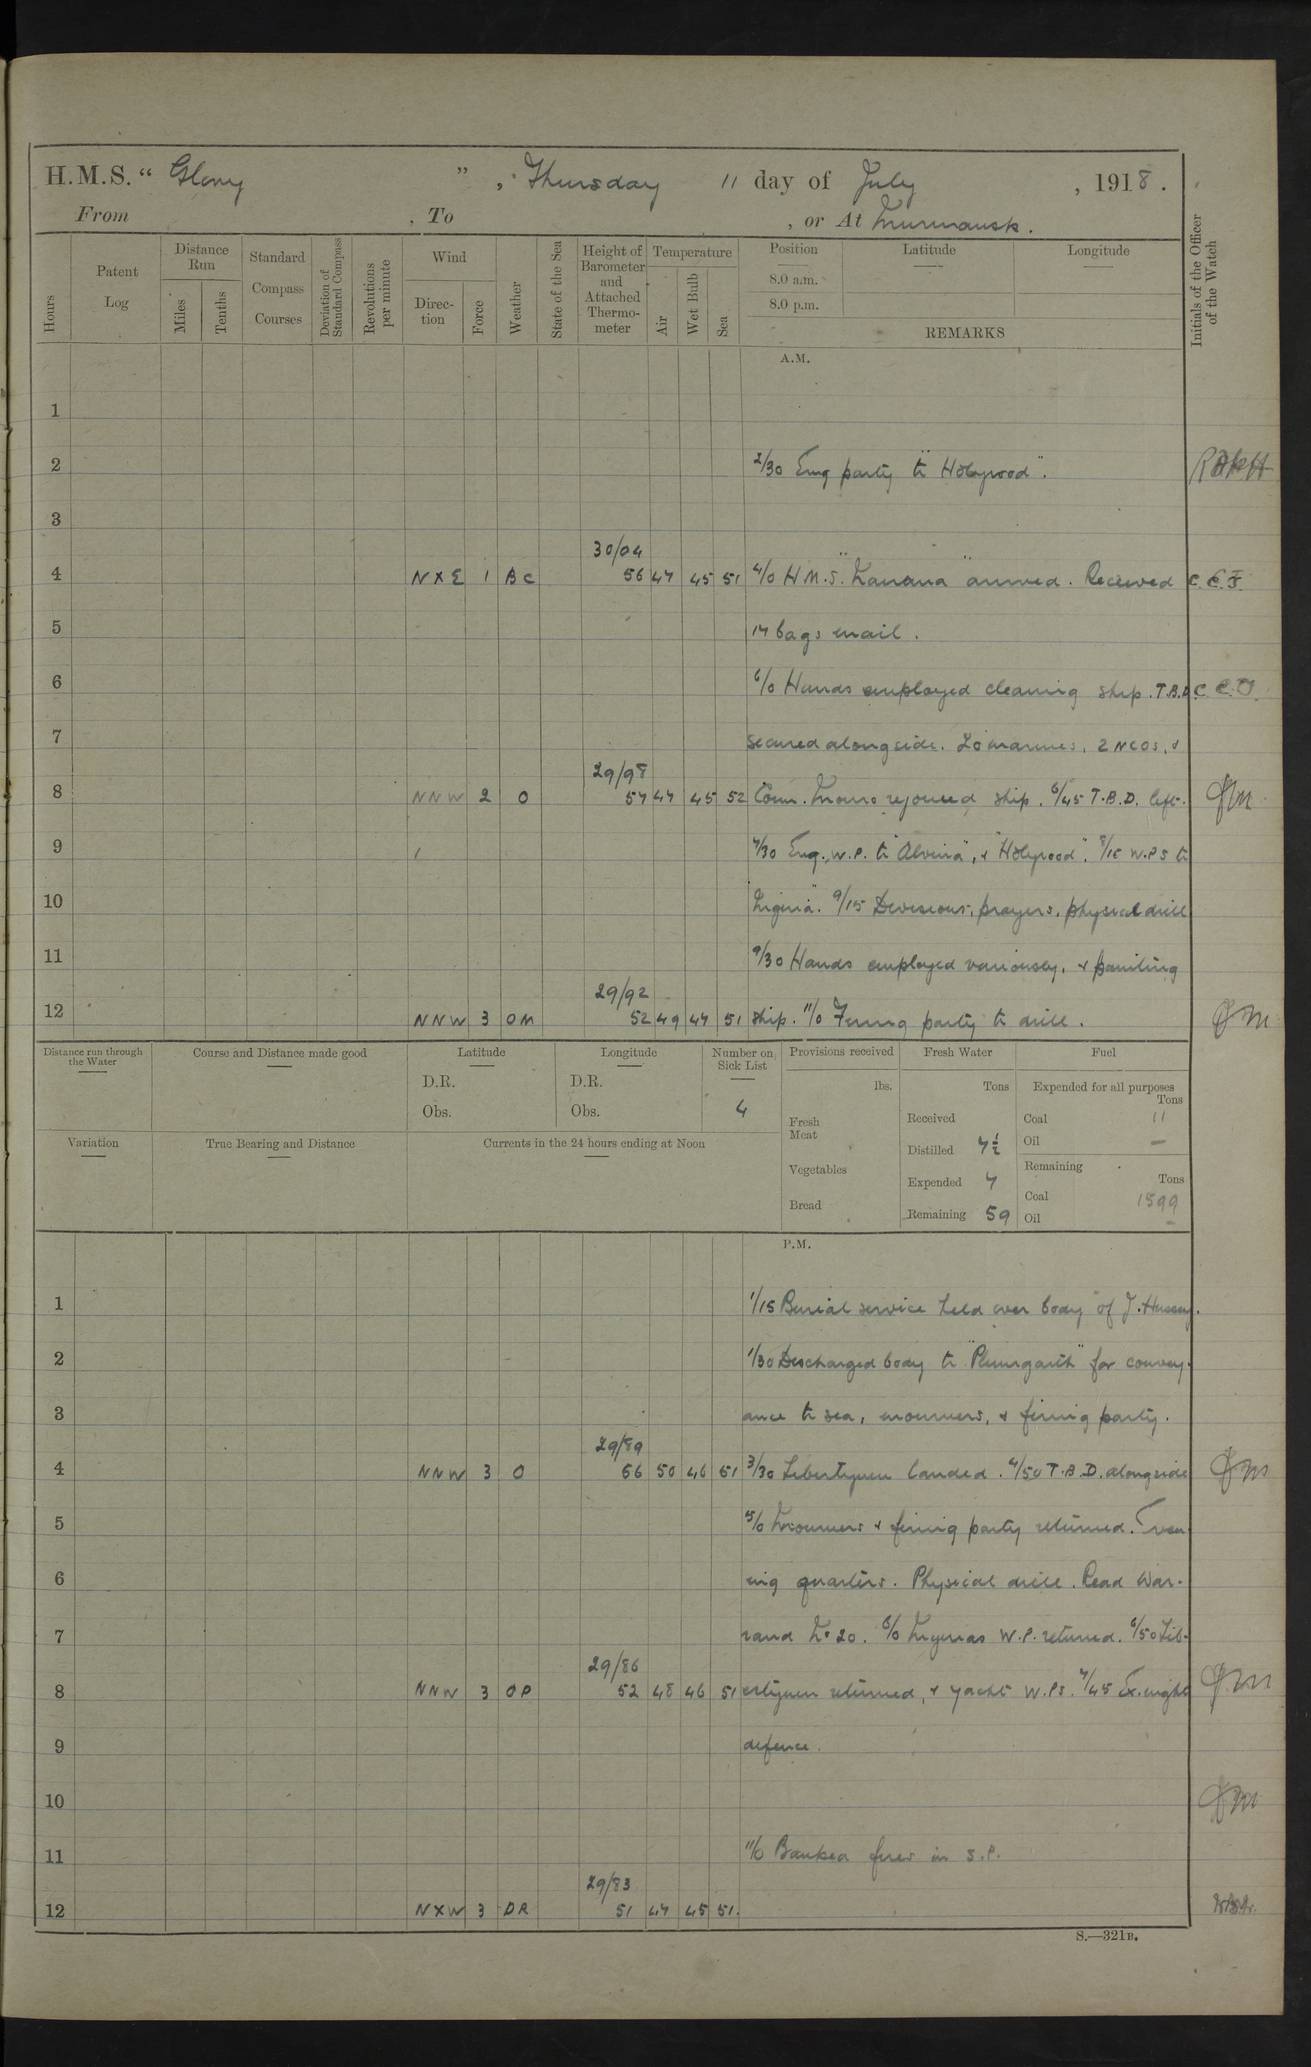 H.M.S. “ Glory ” , Thursday 11 day of July , 1918 .
From , To , or At Murmansk .
Hours
Patent Log
Distance Run
Miles
Tenths
Standard Compass Courses
Deviation of Standard Compass
Revolutions per minute
Wind
Direc-tion
Force
Weather
State of the Sea
Height of Barometer and Attached Thermo-meter
Temperature
Air
Wet Bulb
Sea
Position
8.0 a.m.
8.0 p.m.
Latitude
Longitude
REMARKS
Initials of the Officer of the Watch
A.M.
1
2 2/30 Eng party to "Holywood".
3
30/04
4 N X E 1 B C 56 47 45 51 4/0 H.M.S. " " arrived. Received C. C. J.
5 17 bags mail.
6 6/0 Hands employed cleaning ship. T.B.D. C. C. J.
7 secured alongside. marines, 2 NCOs, &
29/98
8 NNW 2 O 57 47 45 52 rejoined ship. 6/45 T.B.D. left.
9 7/30 Eng. W.P. to "Alvina", & "Holywood". 8/15 W.P.s to
10 "Nigeria". 9/15 Divisions, prayers, physical drill
11 9/30 Hands employed variously, & painting
29/92
12 NNW 3 OM 52 49 47 51 ship. 11/0 Firing party to drill.
Distance run through the Water
Course and Distance made good
Latitude
D.R.
Obs.
Longitude
D.R.
Obs.
Number on Sick List
4
Variation
True Bearing and Distance
Currents in the 24 hours ending at Noon
Provisions received
lbs.
Fresh Meat
Vegetables
Bread
Fresh Water
Tons
Received
Distilled 7½
Expended 7
Remaining 59
Fuel
Expended for all purposes
Tons
Coal 11
Oil —
Remaining
Tons
Coal 1599
Oil —
P.M.
1 1/15 Burial service held over body of J. Hussey.
2 1/30 Discharged body to "Plumgarth" for convey-
3 ance to sea, mourners, & firing party.
29/89
4 NNW 3 O 56 50 46 51 3/30 Libertymen landed. 4/50 T.B.D. alongside
5 5/0 Mourners & firing party returned. Even-
6 ing quarters. Physical drill. Read War-
7 rand No 20. 6/0 Nigerias W.P. returned. 6/50 Lib-
29/86
8 NNW 3 OP 52 48 46 51 ertymen returned, & yacht W.Ps. 7/45 Ex. night
9 defence.
10
11 11/0 Banked fires in S.P.
29/83
12 N X W 3 OR 51 47 45 51.
S.—321B.